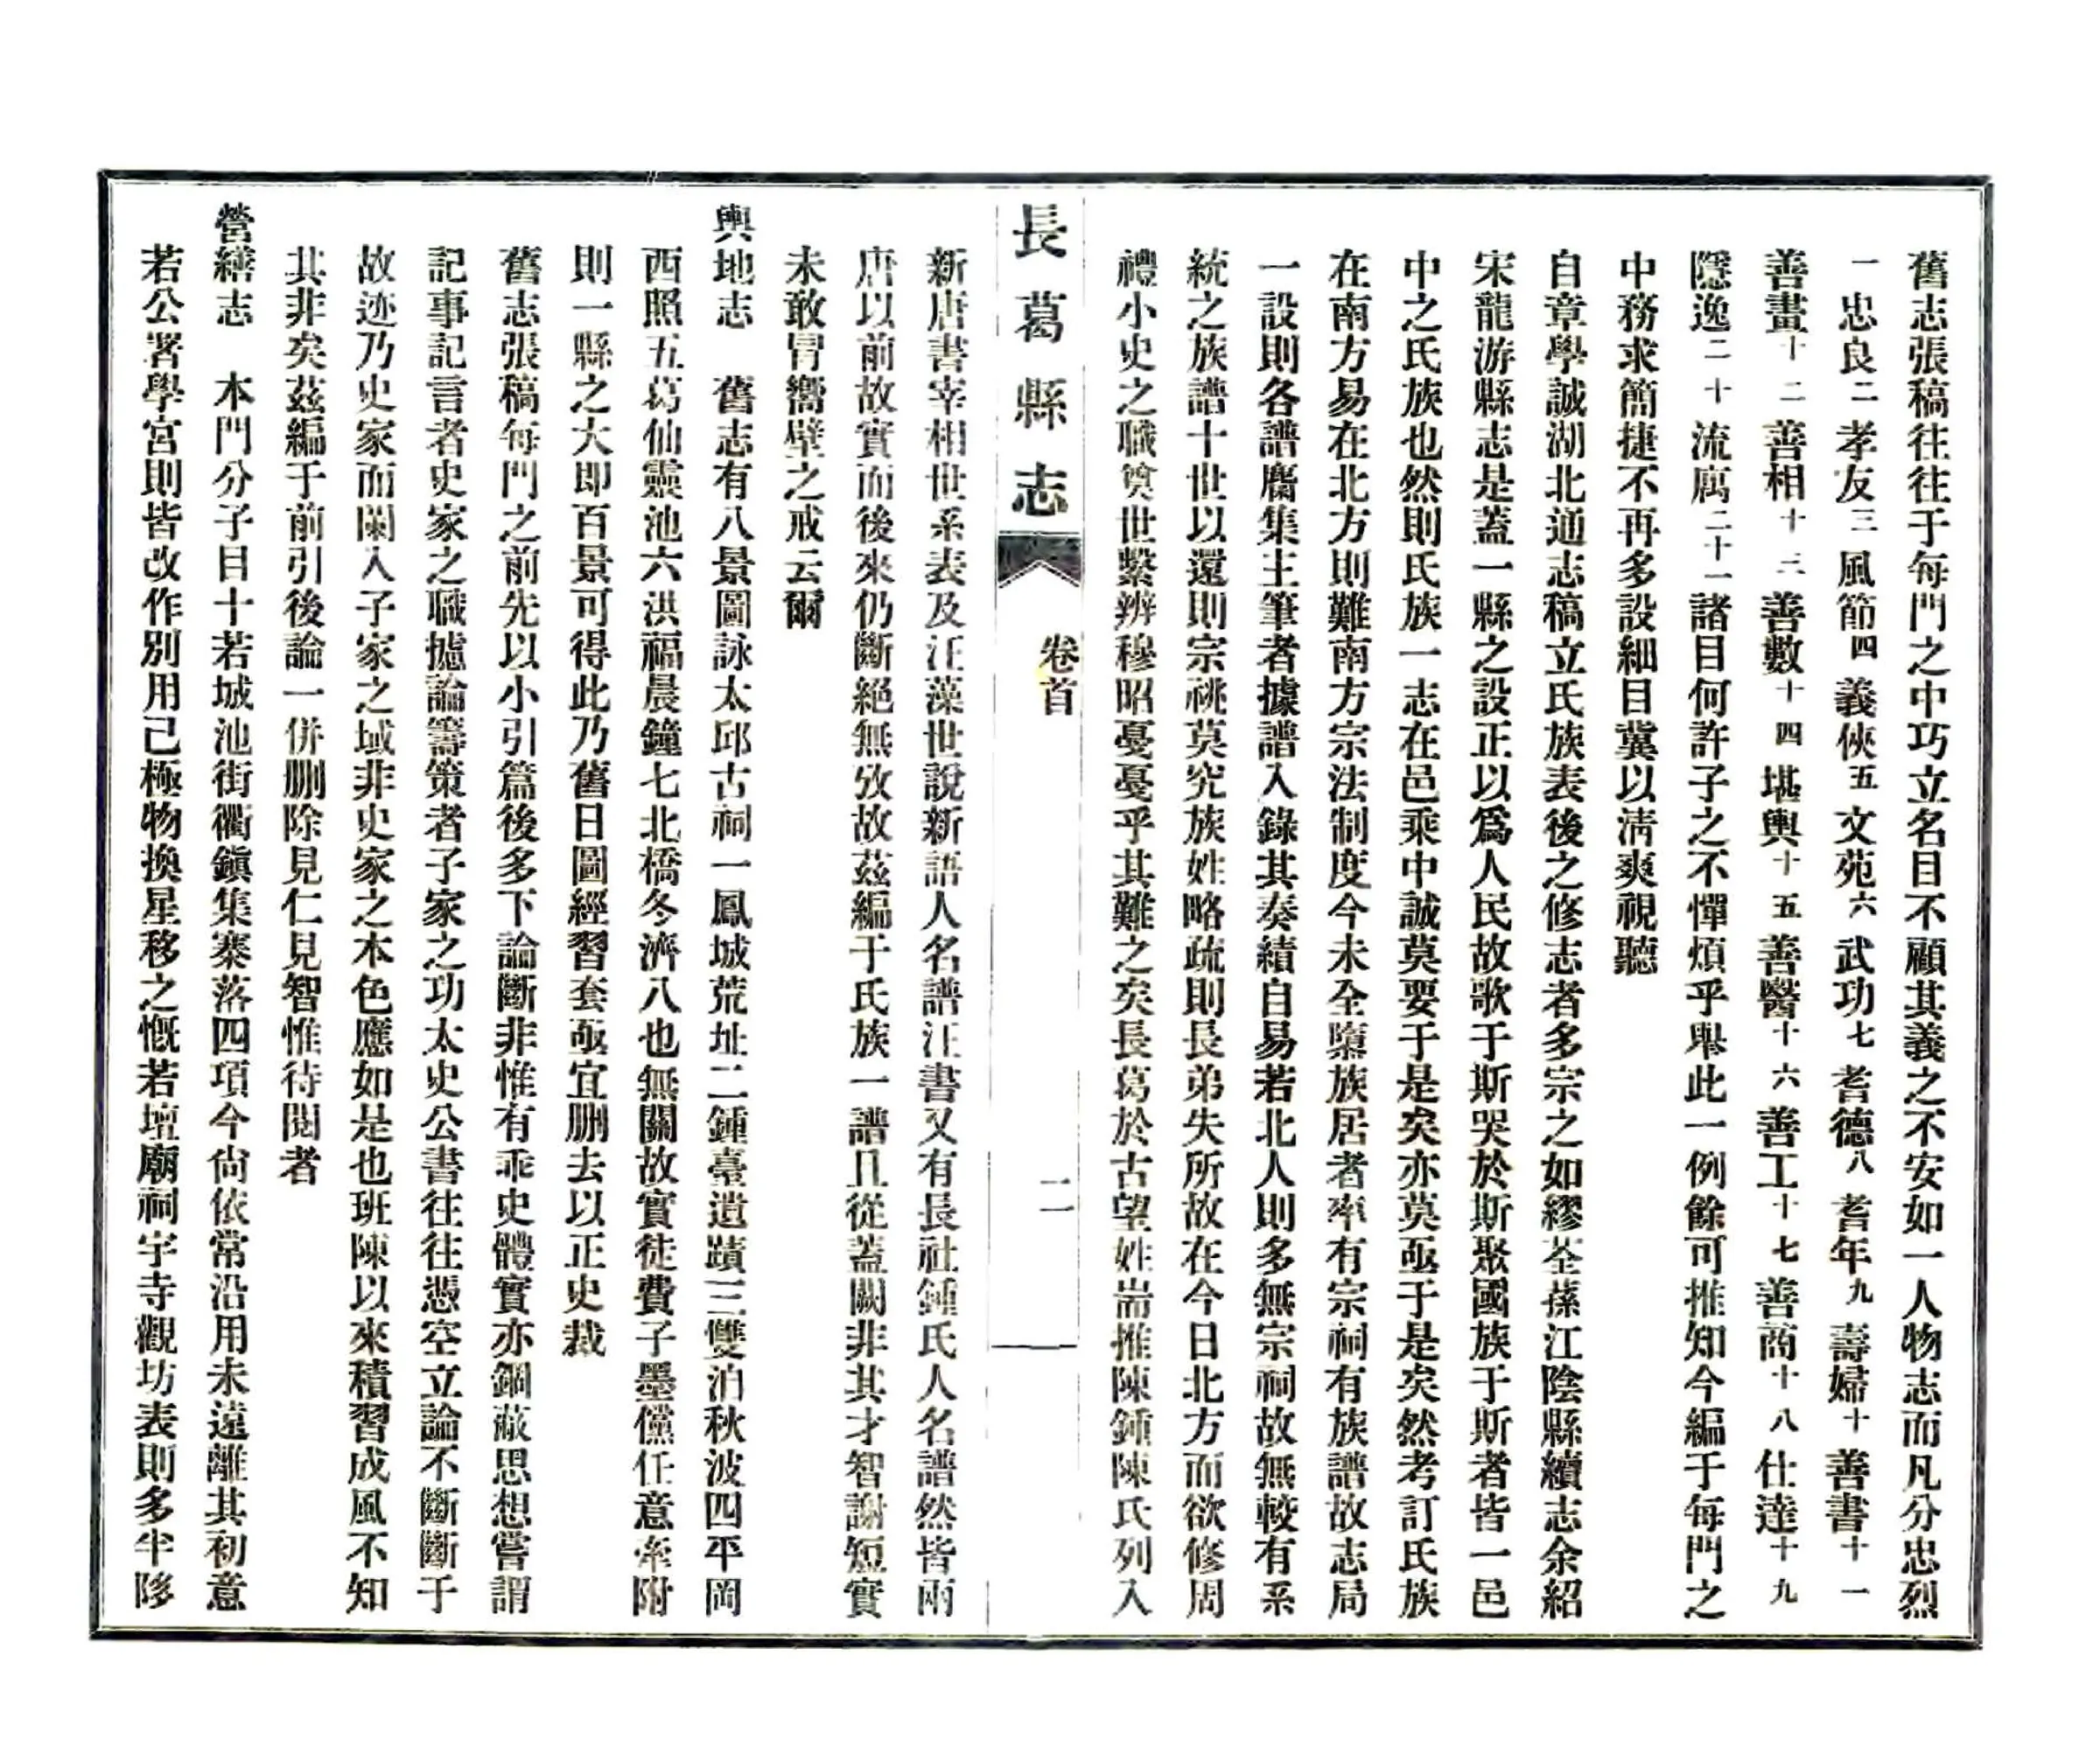 舊志張稿往往于每門之中巧立名目不顧其義之不安如一人物志而凡分忠烈
一忠良二孝友三風節四義俠五文苑六武功七耆德八耆年九壽婦十善書十一
善畫十二善相十三善數十四堪輿十五善醫十六善工十七善商十八仕達十九
隱逸二十流寓二十一諸目何許子之不憚煩乎舉此一例餘可推知今編于每門之
中務求簡捷不再多設細目冀以清爽視聽
自章學誠湖北通志稿立氏族表後之修志者多宗之如繆荃蓀江陰縣續志余紹
宋龍游縣志是蓋一縣之設正以爲人民故歌于斯哭於斯聚國族于斯者皆一邑
中之氏族也然則氏族一志在邑乘中誠莫要于是矣亦莫亟于是矣然考訂氏族
在南方易在北方則難南方宗法制度今未全墮族居者率有宗祠有族譜故志局
一設則各譜麕集主筆者據譜入錄其奏績自易若北人則多無宗祠故無較有系
統之族譜十世以還則宗祧莫究族姓略疏則長弟失所故在今日北方而欲修周
禮小史之職奠世繫辨穆昭戞戞乎其難之矣長葛於古望姓耑推陳鍾陳氏列入
長葛縣志
卷首
二
新唐書宰相世系表及汪藻世說新語人名譜汪書又有長社鍾氏人名譜然皆兩
唐以前故實而後來仍斷絕無攷故茲編于氏族一譜且從蓋闕非其才智謝短實
未敢冒嚮壁之戒云爾
輿地志　舊志有八景圖詠太邱古祠一鳳城荒址二鍾臺遺蹟三雙洎秋波四平岡
西照五葛仙靈池六洪福晨鐘七北橋冬濟八也無關故實徒費子墨儻任意牽附
則一縣之大即百景可得此乃舊日圖經習套亟宜刪去以正史裁
舊志張稿每門之前先以小引篇後多下論斷非惟有乖史體實亦錮蔽思想嘗謂
記事記言者史家之職攄論籌策者子家之功太史公書往往憑空立論不斷斷于
故迹乃史家而闌入子家之域非史家之本色應如是也班陳以來積習成風不知
其非矣茲編于前引後論一併刪除見仁見智惟待閱者
營繕志　本門分子目十若城池街衢鎭集寨落四項今尙依常沿用未遠離其初意
若公署學宮則皆改作別用已極物換星移之慨若壇廟祠宇寺觀坊表則多半陊